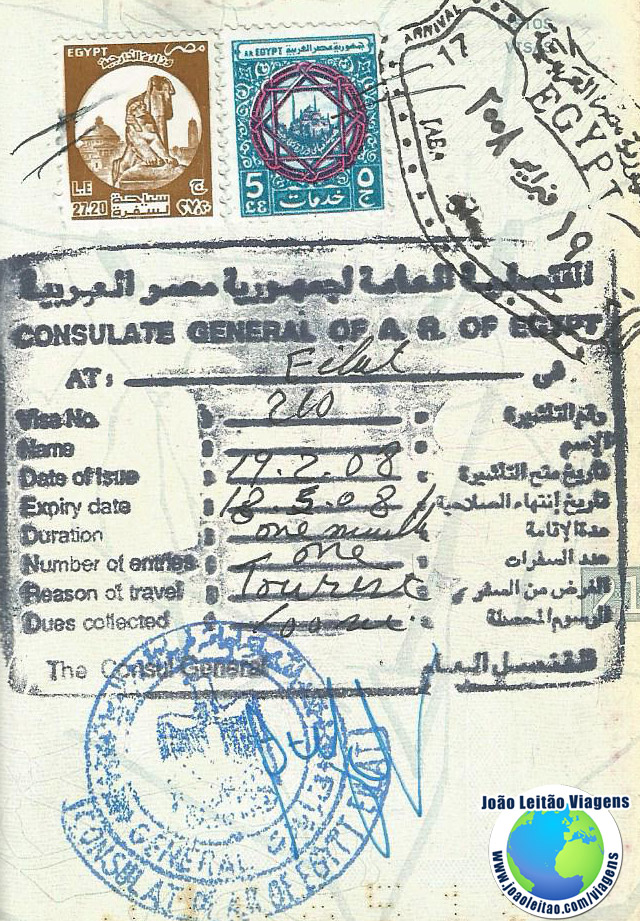 EGYPT مصر
وزارة الخارجية
L.E ج
27.20 سياحية ٢٧٫٢٠
لسفرة
A.R EGYPT جمهورية مصر العربية
5 ٥
£E خدمات ج
ARRIVAL
17
TABA
EGYPT
١٩ فبراير ٢٠٠٨
VISAS
القنصلية العامة لجمهورية مصر العربية
CONSULATE GENERAL OF A. R. OF EGYPT
AT: Eilat فى
Visa No. : 260 : رقم التأشيرة
Name : : الإسم
Date of issue : 19.2.08 : تاريخ منح التأشيرة
Expiry date : 18.5.08 : تاريخ إنتهاء الصلاحية
Duration : one month : مدة الإقامة
Number of entries : one : عدد السفرات
Reason of travel : Tourist : الغرض من السفر
Dues collected : : الرسوم المحصلة
The Consul General القنصل العام
GENERAL
CONSULAT OF A.R OF EGYPT EILAT
João Leitão Viagens
www.joaoleitao.com/viagens